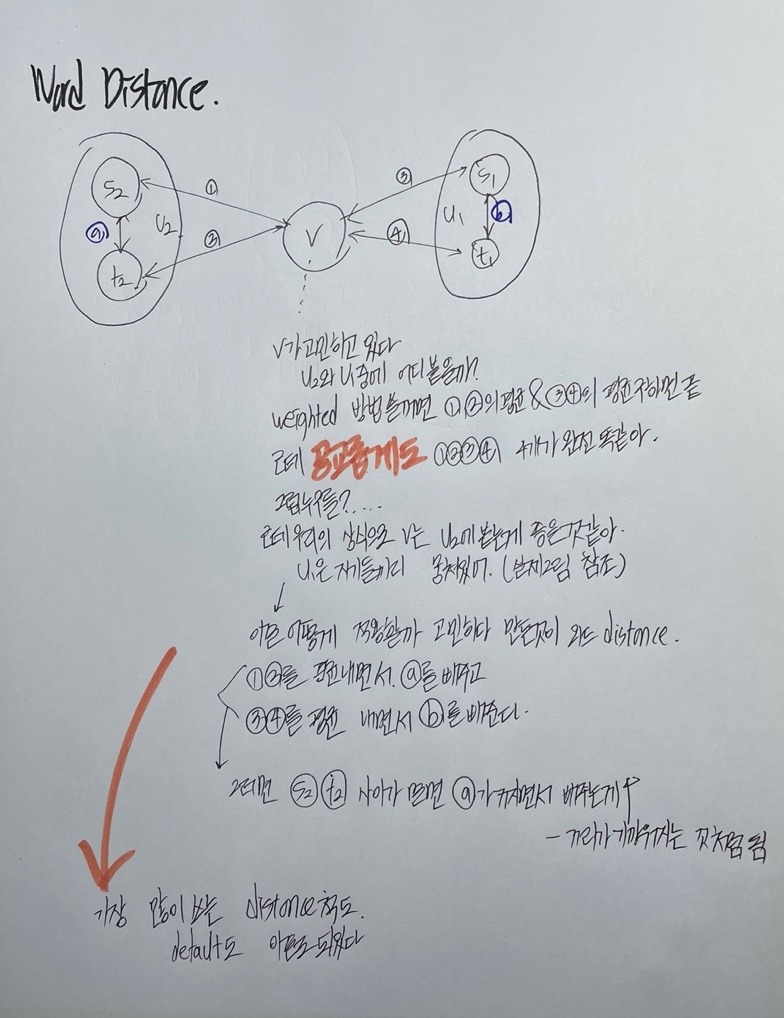 Word Distance.
S₂ ① ③ S₁
ⓐ U₂ V U₁ ⓑ
t₂ ③ ④ t₁
V가 고민하고 있다
U₂와 U₁중에 어디 붙을까?
weighted 방법 쓸꺼면 ①②의평균 & ③④의 평균구하면 끝
근데 공교롭게도 ①②③④ 4개가 완전 똑같아.
그럼누구를?.....
근데 우리의 상식으로 V는 U₂에 붙는게 좋은것같아.
U₁은 자기들끼리 뭉쳐있어. (실제그림 참조)
어떻게 적용할까 고민하다 만든것이 와드 distance.
①②를 평균내면서. ⓐ를 빼주고
③④를 평균 내면서 ⓑ를 빼준다.
그러면 S₂ t₂ 사이가 멀면 ⓐ가 커지면서 빼주는게↑
- 거리가 가까워지는 것처럼 됨
가장 많이 쓰는 distance척도.
default도 이걸로 되있다